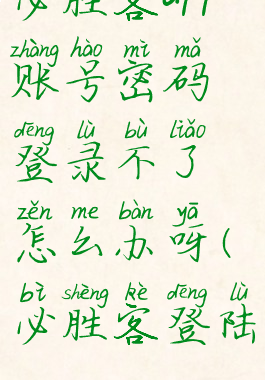 必胜客听(
zhàng hào mì mǎ
账号密码
dēng lù bù liǎo
登录不了
zěn me bàn yā
怎么办呀(
bì shèng kè dēng lù
必胜客登陆